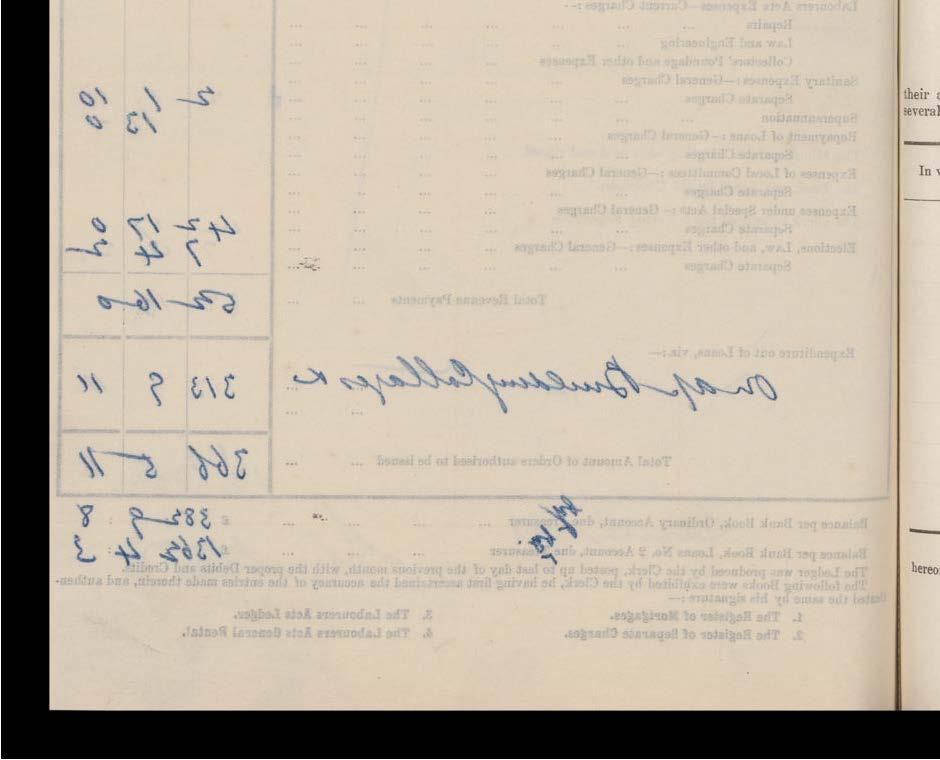 Labourers Acts Expenses—Current Charges :—
Repairs ... ... ... ... ... ...
Law and Engineering ... ... ... ... ...
Collectors' Poundage and other Expenses ... ...
Sanitary Expenses :—General Charges ... ... ... ...
Separate Charges ... ... ... ... ...
Superannuation ... ... ... ... ... ...
Repayment of Loans :—General Charges ... ... ... ...
Separate Charges ... ... ... ... ...
Expenses of Local Committees :—General Charges ... ... ...
Separate Charges ... ... ... ... ...
Expenses under Special Acts :—General Charges ... ... ...
Separate Charges ... ... ... ... ...
Elections, Law, and other Expenses :—General Charges ... ...
Separate Charges ... ... ... ... ...
Total Revenue Payments ... ... 52 16 0
Expenditure out of Loans, viz.:—
Building Cottages 313 9 11
Total Amount of Orders authorised to be issued ... ... 366 5 11
Balance per Bank Book, Ordinary Account, due Treasurer ... £ 382 9 8
Balance per Bank Book, Loans No. 2 Account, due Treasurer £ 1362 4 3
The Ledger was produced by the Clerk, posted up to last day of the previous month, with the proper Debits and Credits.
The following Books were exhibited by the Clerk, he having first ascertained the accuracy of the entries made therein, and authen-
ticated the same by his signature :—
1. The Register of Mortgages. 3. The Labourers Acts Ledger.
2. The Register of Separate Charges. 4. The Labourers Acts General Rental.
their a
several
In v
hereo